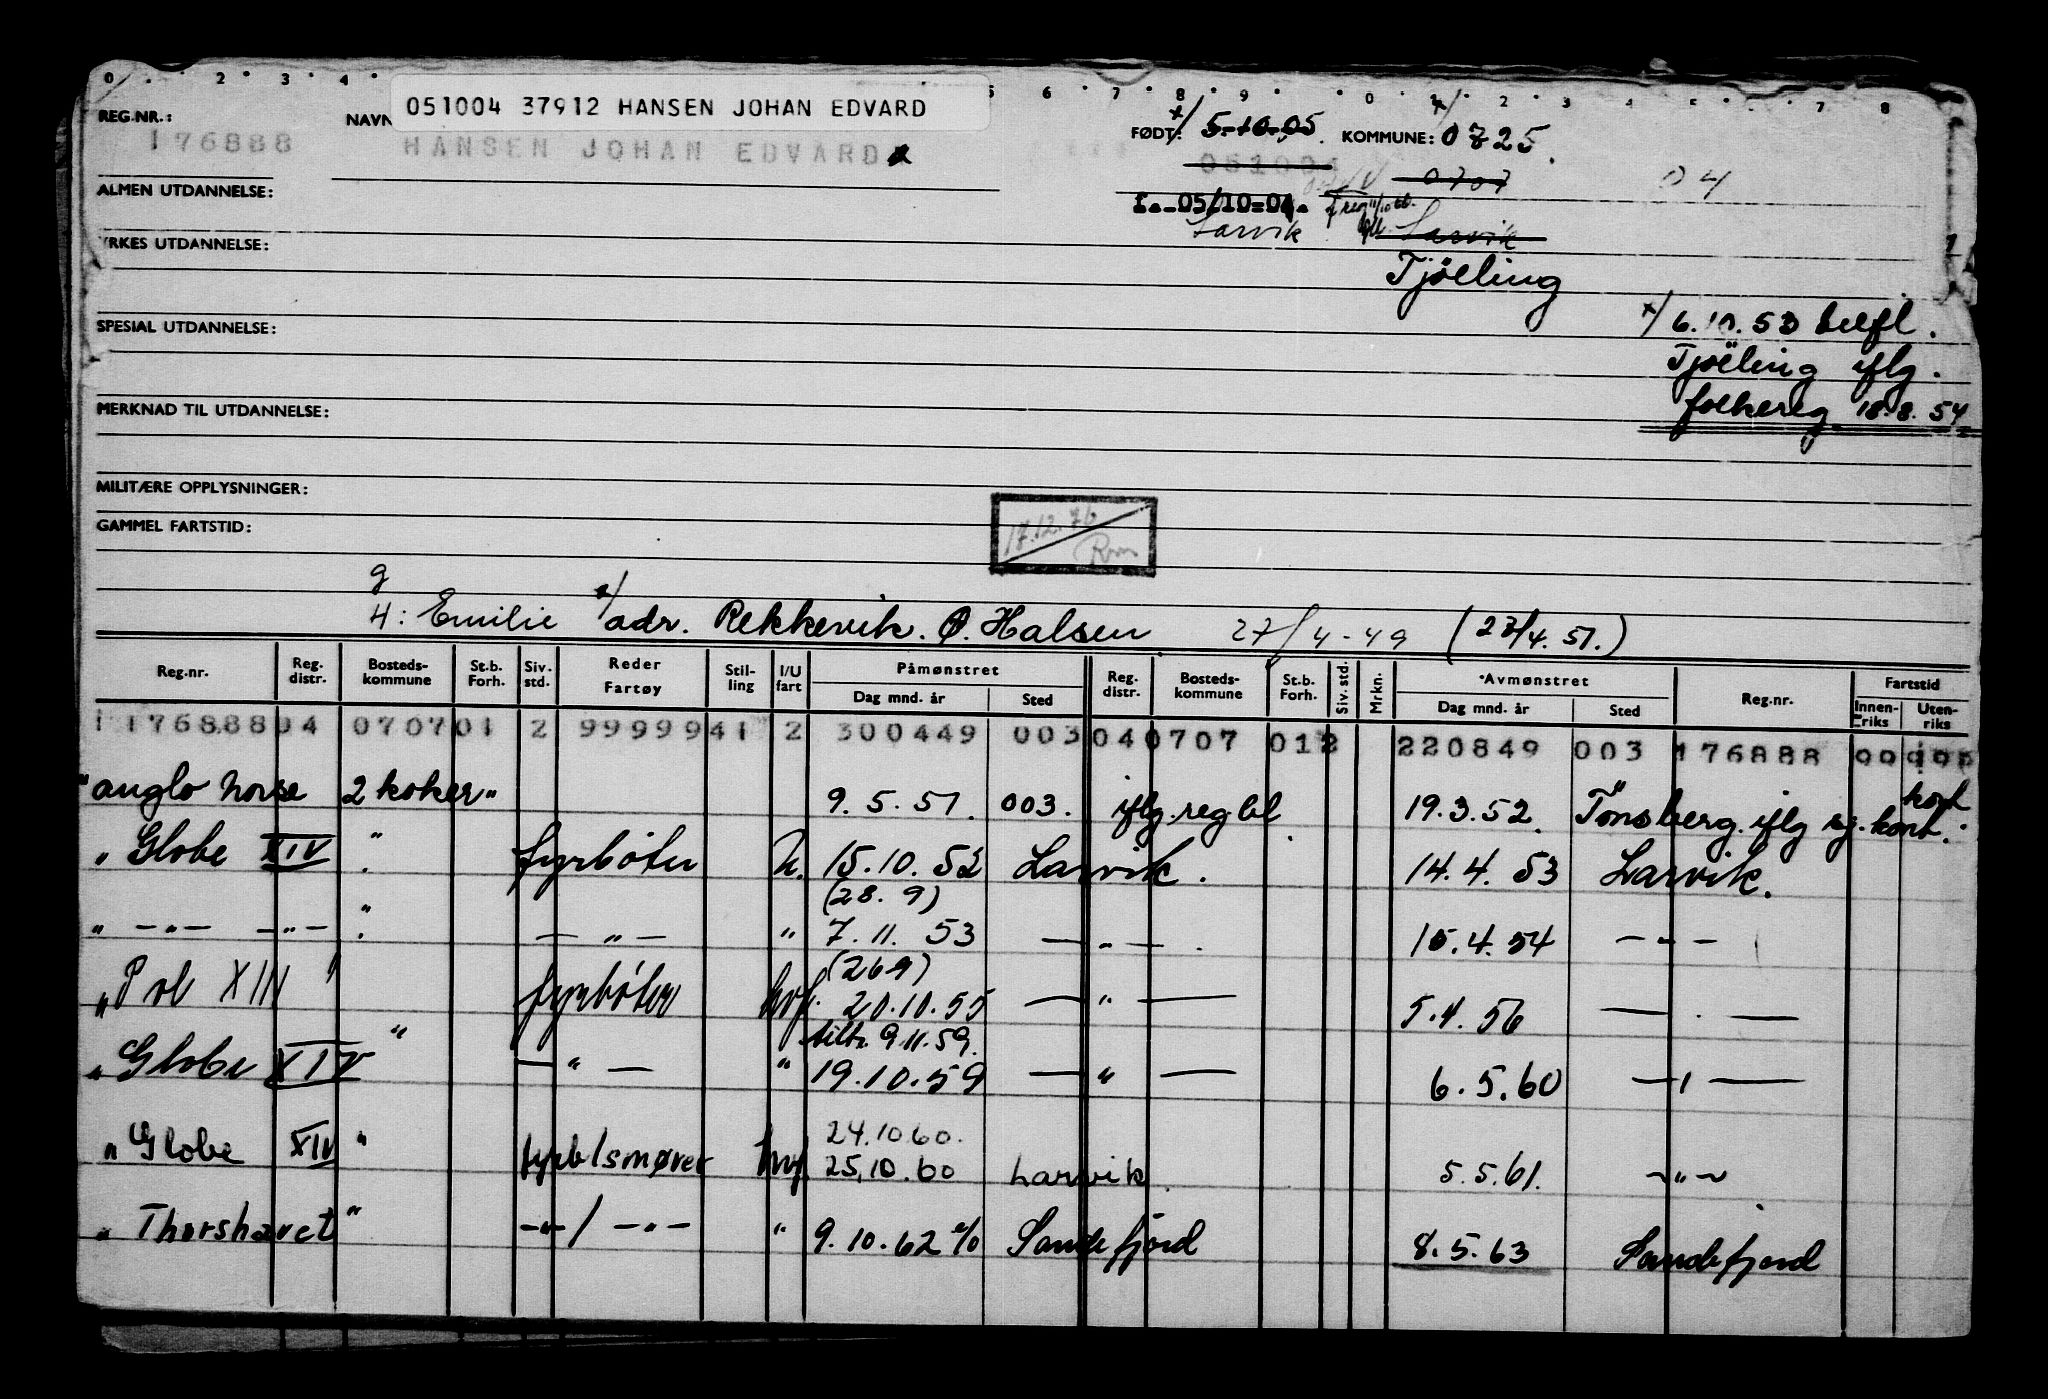 0 . 2 . 3 . 4 . 5 6 . 7 . 8 . 9 . 0 . 1 . 2 . 3 7 8
REG.NR.: 176888
NAVN 051004 37912 HANSEN JOHAN EDVARD
HANSEN JOHAN EDVARD
FØDT: x/ 5-10-05. KOMMUNE: x/ 0725.
051004 0707 04
f.-05/10-04.
Larvik Larvik
Tjölling
ALMEN UTDANNELSE:
YRKES UTDANNELSE:
SPESIAL UTDANNELSE:
x/ 6.10.53 tilfl.
Tjölling iflg.
folkereg 18.8.54
MERKNAD TIL UTDANNELSE:
MILITÆRE OPPLYSNINGER:
GAMMEL FARTSTID:
17.12.76
g
H: Emilie x/ adr. Rekkevik. Ø. Halsen 27/4-49 (23/4.51.)
Reg.nr. Reg. distr. Bosteds- kommune St.b. Forh. Siv. std. Reder Fartøy Stil- ling I/U fart Påmønstret Dag mnd. år Sted Reg. distr. Bosteds- kommune St.b. Forh. Siv. std. Mrkn. Avmønstret Dag mnd. år Sted Reg.nr. Fartstid Innen- riks Uten- riks
1176888 04 0707 01 2 99999 41 2 300449 003 04 0707 01 2 220849 003 176888
"anglo norse 2 koker" 9.5.51. 003. iflg. reg.bl. 19.3.52. Tönsberg iflg rg. kort.
" Globe XIV " fyrböter U. 15.10.52 Larvik. 14.4.53 Larvik.
(28.9)
" —"— —"— " —"— " 7.11.53 —"— 15.4.54 —"—
(26.9)
" Pol XIII " fyrböter hvf. 20.10.55 —"— 5.4.56 — . —
tiltr. 9.11.59.
" Globe XIV " —"— " 19.10.59 —"— 6.5.60 —"—
24.10.60.
" Globe XIV " fyrb/smører hvf. 25.10.60 Larvik. 5.5.61. —"—
" Thorshavet " —"—/—"— " 9.10.62 Sandefjord 8.5.63 Sandefjord